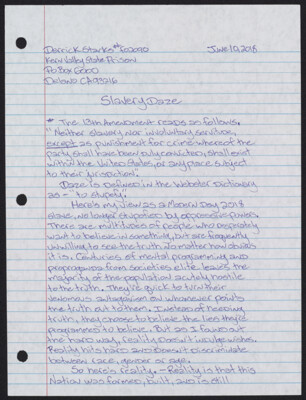 Derrick Starks #F02090 June 10, 2018
Kern Valley State Prison
Po Box 6000
Delano CA 93216
Slavery Daze
* The 13th Amendment reads as follows,
"Neither slavery nor involuntary servitude,
except as punishment for crime whereof the
party shall have been duly convicted, shall exist
within the United States, or any place subject
to their jurisdiction.
Daze is defined in the Webster Dictionary
as - "to stupefy."
Here's my view as a Modern Day 2018
slave, no longer stupefied by oppressive powers.
There are multitudes of people who desperately
want to believe in something, but are frequently
unwilling to see the truth no matter how obvious
it is. Centuries of mental programming and
propaganda from societies elite leaves the
majority of the population acutely hostile
to the truth. They're quick to turn their
venomous antagonism on whomever points
the truth out to them. Instead of hearing
truth, they choose to believe the lies they'd
programmed to believe. But as I found out
the hard way, reality doesn't indulge wishes.
Reality hits hard and doesn't discriminate
between race, gender or age.
So here's reality. - Reality is that this
Nation was formed, built, and is still